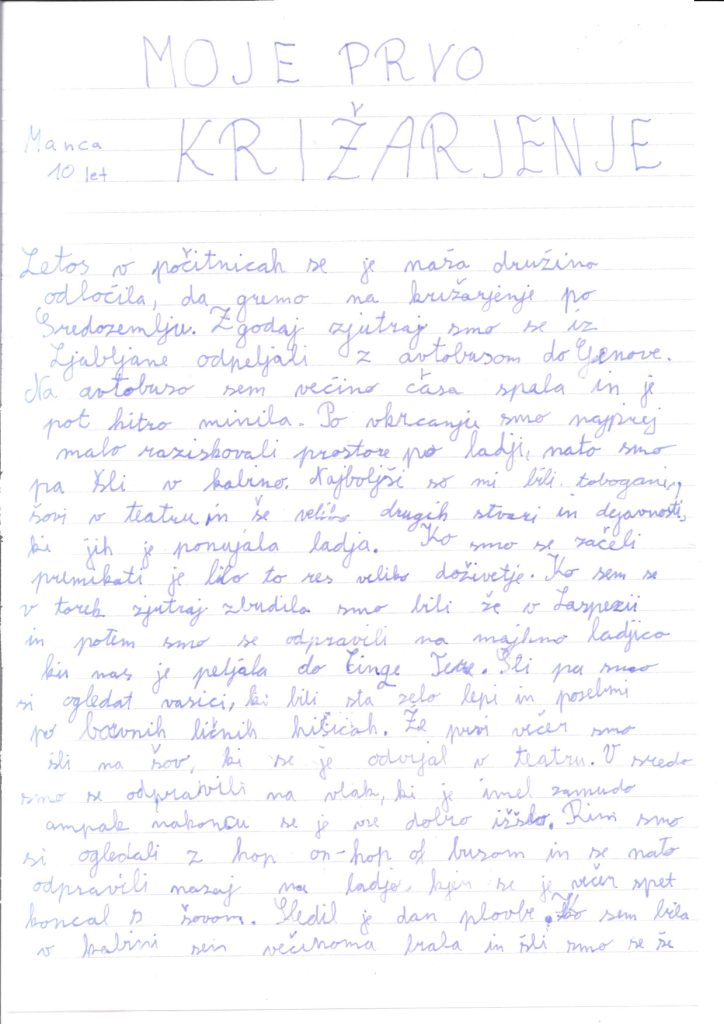 MOJE PRVO
KRIŽARJENJE
Manca
10 let
Letos v počitnicah se je naša družina
odločila, da gremo na križarjenje po
Sredozemlju. Zgodaj zjutraj smo se iz
Ljubljane odpeljali z avtobusom do Genove.
Na avtobuso sem večino časa spala in je
pot hitro minila. Po vkrcanju smo najprej
malo raziskovali prostore po ladji, nato smo
pa šli v kabino. Najboljši so mi bili tobogani,
šovi v teatru in še veliko drugih stvari in dejavnosti,
ki jih je ponujala ladja. Ko smo se začeli
premikati je bilo to res veliko doživetje. Ko sem se
v torek zjutraj zbudila smo bili že v Laspezii
in potem smo se odpravili na majhno ladjico
ki nas je peljala do Cinqe Tere. Šli pa smo
si ogledat vasici, ki bili sta zelo lepi in posebni
po barvnih ličnih hišicah. Že prvi večer smo
šli na šov, ki se je odvijal v teatru. V sredo
smo se odpravili na vlak, ki je imel zamudo
ampak nakoncu se je vse dobro izšlo. Rim smo
si ogledali z hop on-hop of busom in se nato
odpravili nazaj na ladjo, kjer se je večer spet
koncal s šovom. Sledil je dan plovbe. Ko sem bila
v kabini sem večinoma brala in šli smo se še